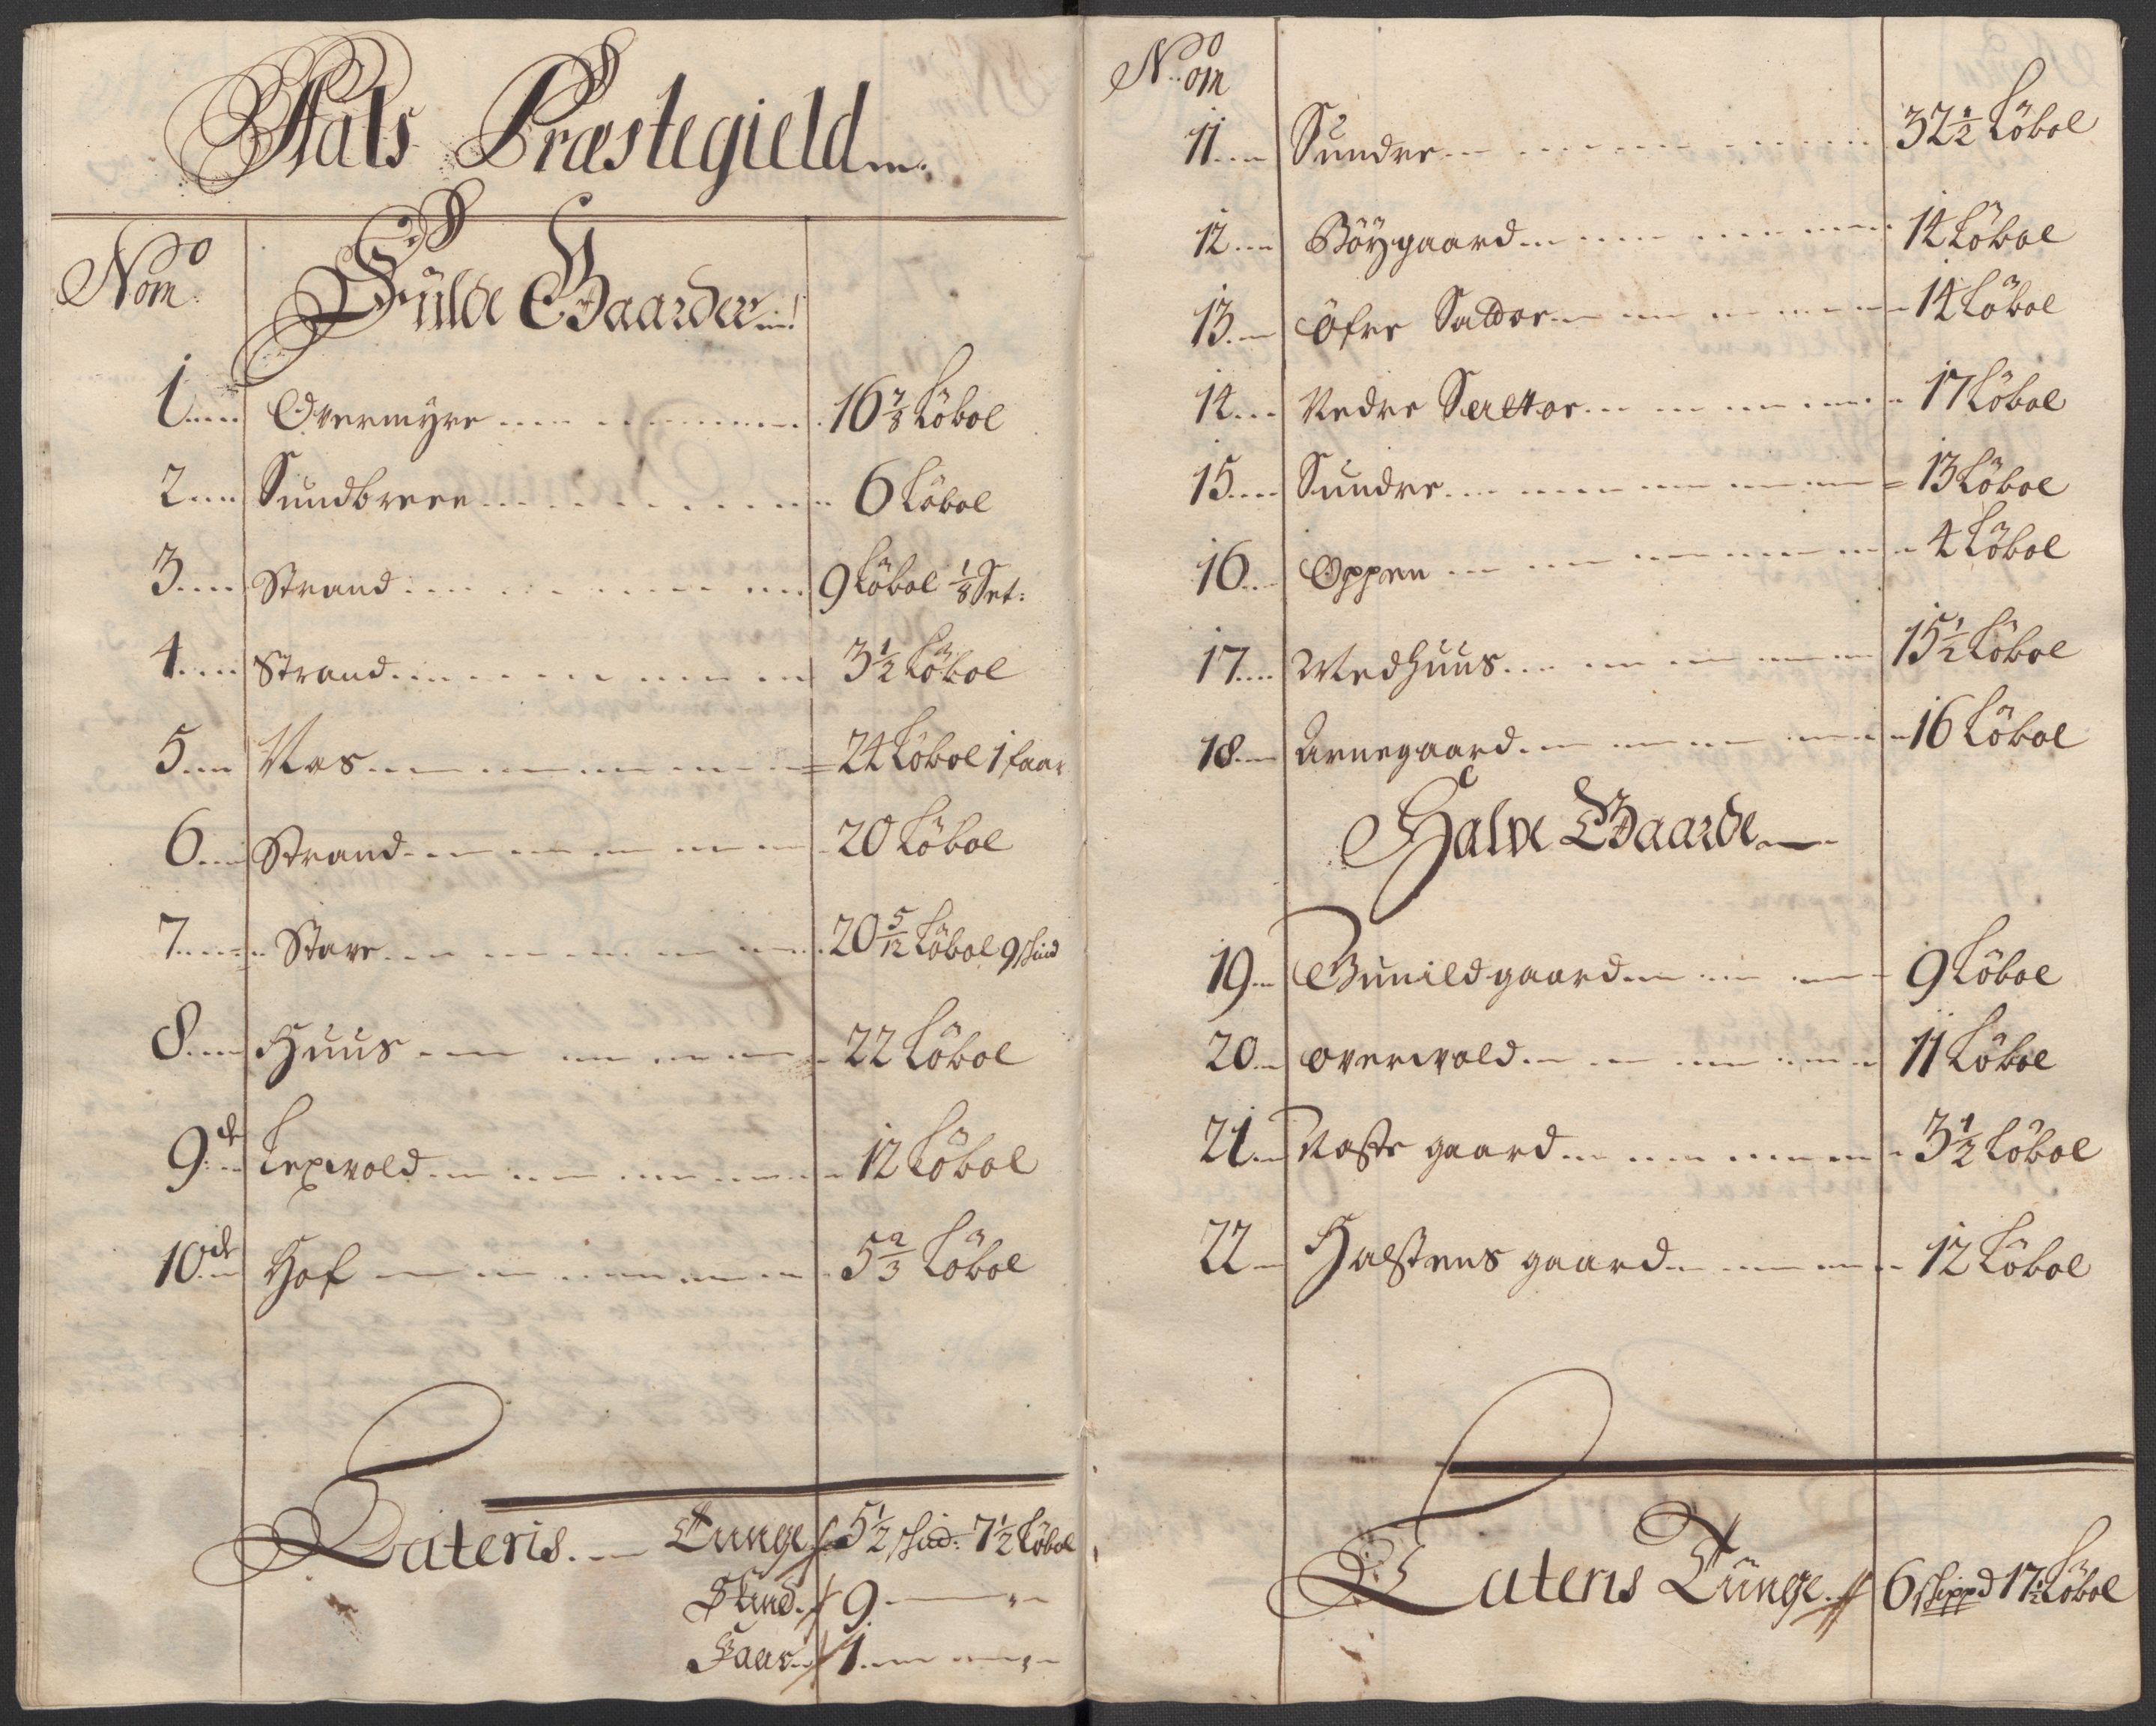 Aals Præstegield
No
Nom: Fulde Gaarder
1 Overmyre 16 7/8 Löbol
2 Sundbreen 6 Löbol
3 Strand 9 Löbol 1/8 Set:
4 Strand 3 1/2 Löbol
5 Næs 24 Löbol 1 faar
6 Strand 20 Löbol
7 Stave 20 5/12 Löbol 9 skind
8 Huus 22 Löbol
9de Lexvold 12 Löbol
10de Hof 5 2/3 Löbol
Lateris Tunge 5 1/2 skid: 7 1/2 Löbol
Skind 9
Faar 1
No
Nom
11 Sundre 32 1/2 Löbol
12 Böygaard 14 Löbol
13 Öfre Sattor 14 Löbol
14 Nedre Sattor 17 Löbol
15 Sundre 13 Löbol
16 Oppen 4 Löbol
17 Medhuus 15 1/2 Löbol
18 Arnegaard 16 Löbol
Halve Gaarde
19 Gunildgaard 9 Löbol
20 overvold 11 Löbol
21 Noste gaard 3 1/2 Löbol
22 Halstens gaard 12 Löbol
Lateris Tunge 6 skippd 17 1/2 Löbol